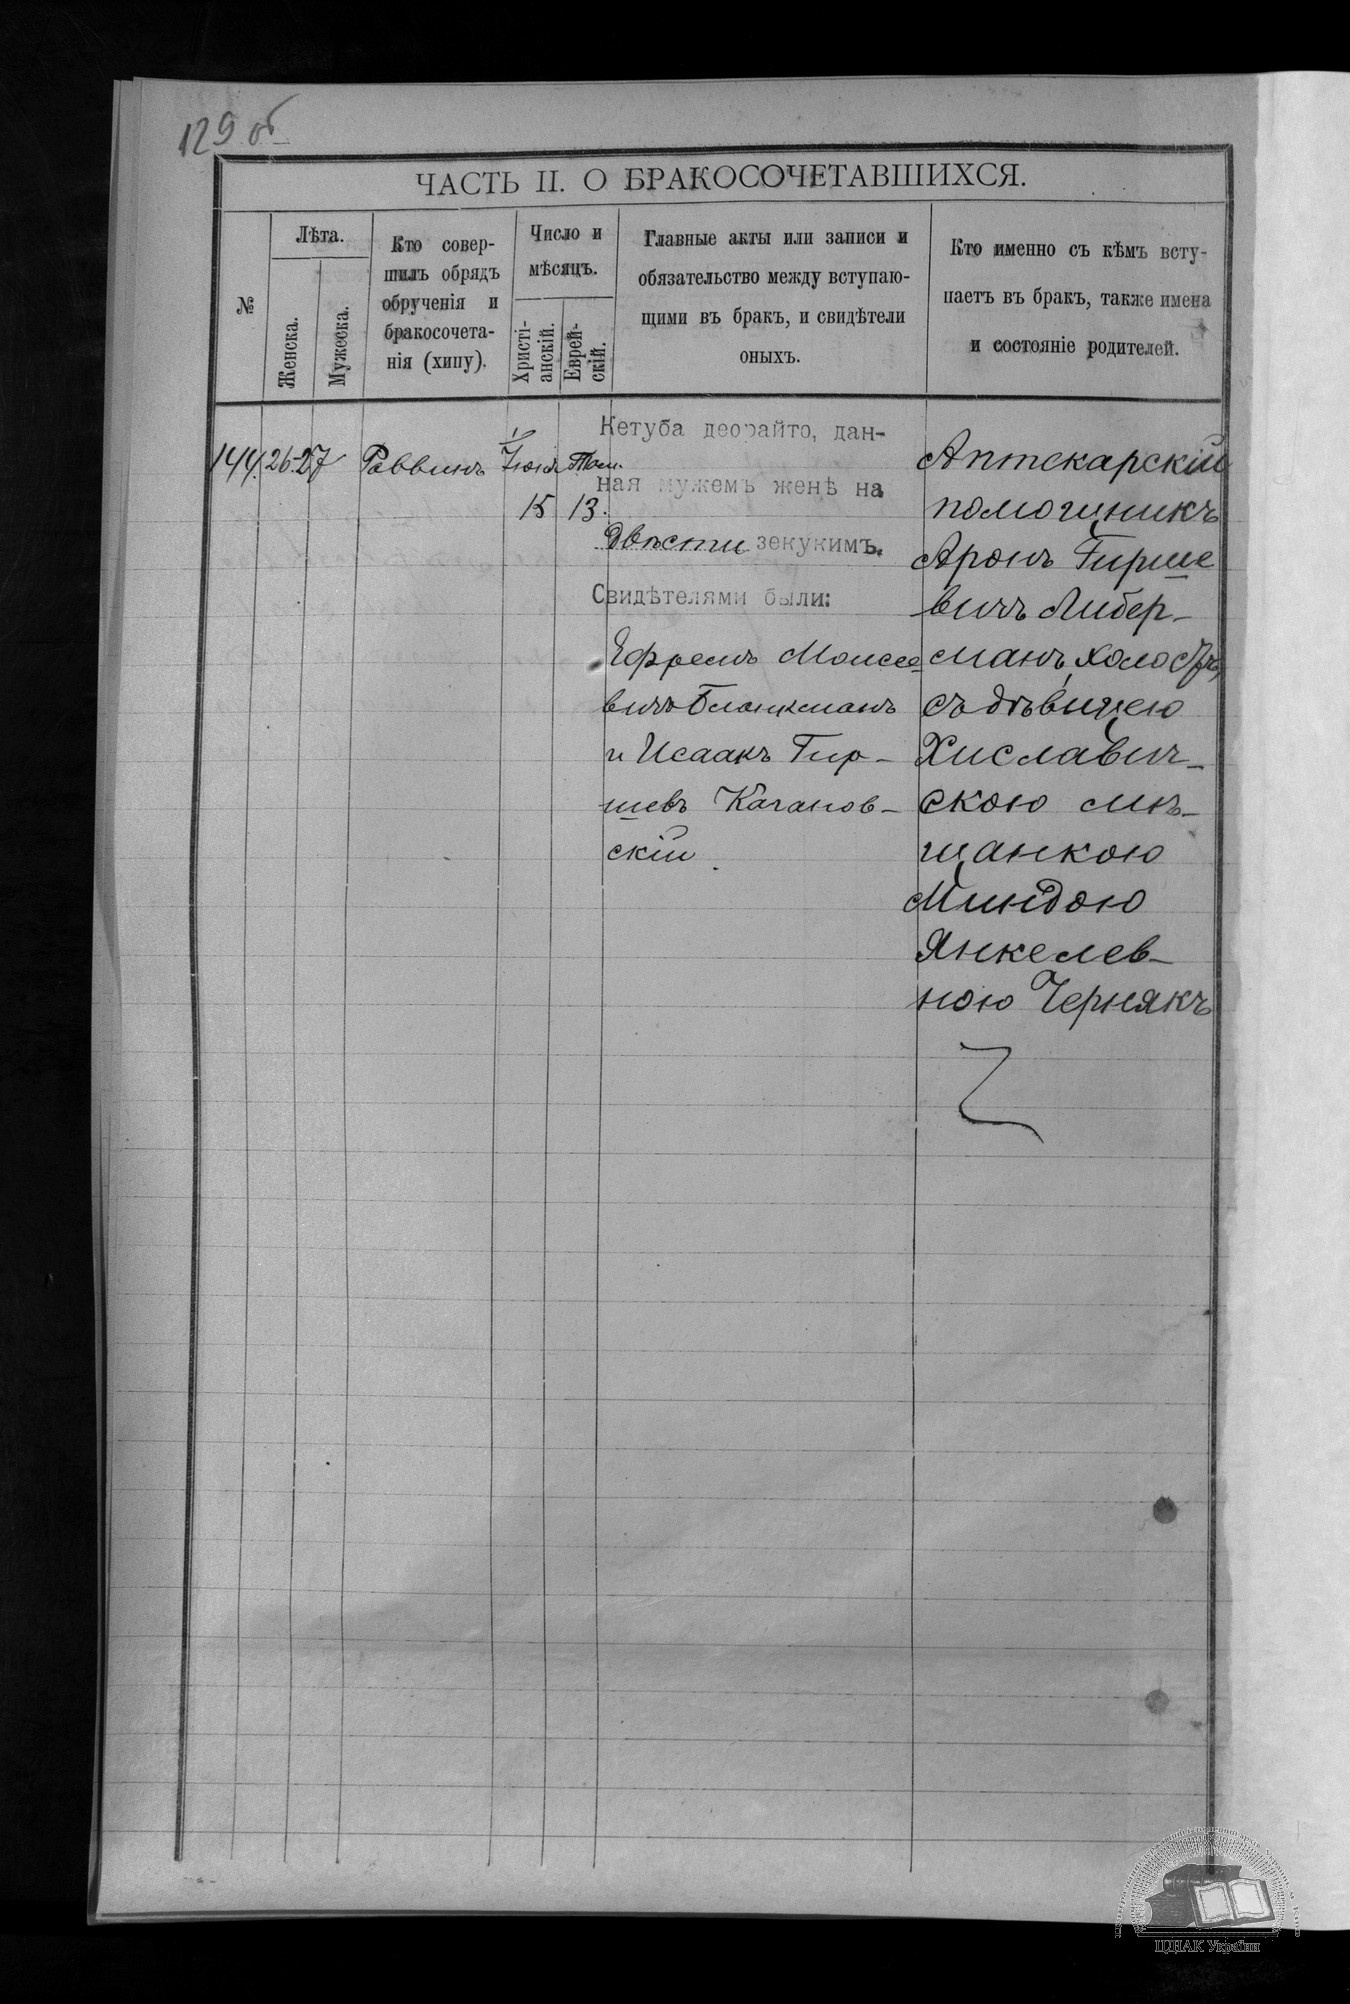 129 об
ЧАСТЬ II. О БРАКОСОЧЕТАВШИХСЯ.
№
Лѣта.
Женска.
Мужеска.
Кто совер-
шилъ обрядъ
обрученія и
бракосочета-
нія (хипу).
Число и
мѣсяцъ.
Христі-
анскій.
Еврей-
скій.
Главные акты или записи и
обязательство между вступаю-
щими въ бракъ, и свидѣтели
оныхъ.
Кто именно съ кѣмъ всту-
паетъ въ бракъ, также имена
и состояніе родителей.
144. 26-27 Раввинъ
15 13.
Кетуба деорайто, дан-
ная мужемъ женѣ на
двѣсти зекукимъ.
Свидѣтелями были:
Ефремъ Моисее-
вичъ Бланкманъ
и Исаакъ Гир-
шевъ Качанов-
скій.
Аптекарскій
помощникъ
Аронъ Гирше
вичъ Либер-
манъ, холостъ,
съ дѣвицею
Хиславич-
скою мѣ-
щанкою
Миндою
Янкелев-
ною Чернякъ
ЦДІАК України